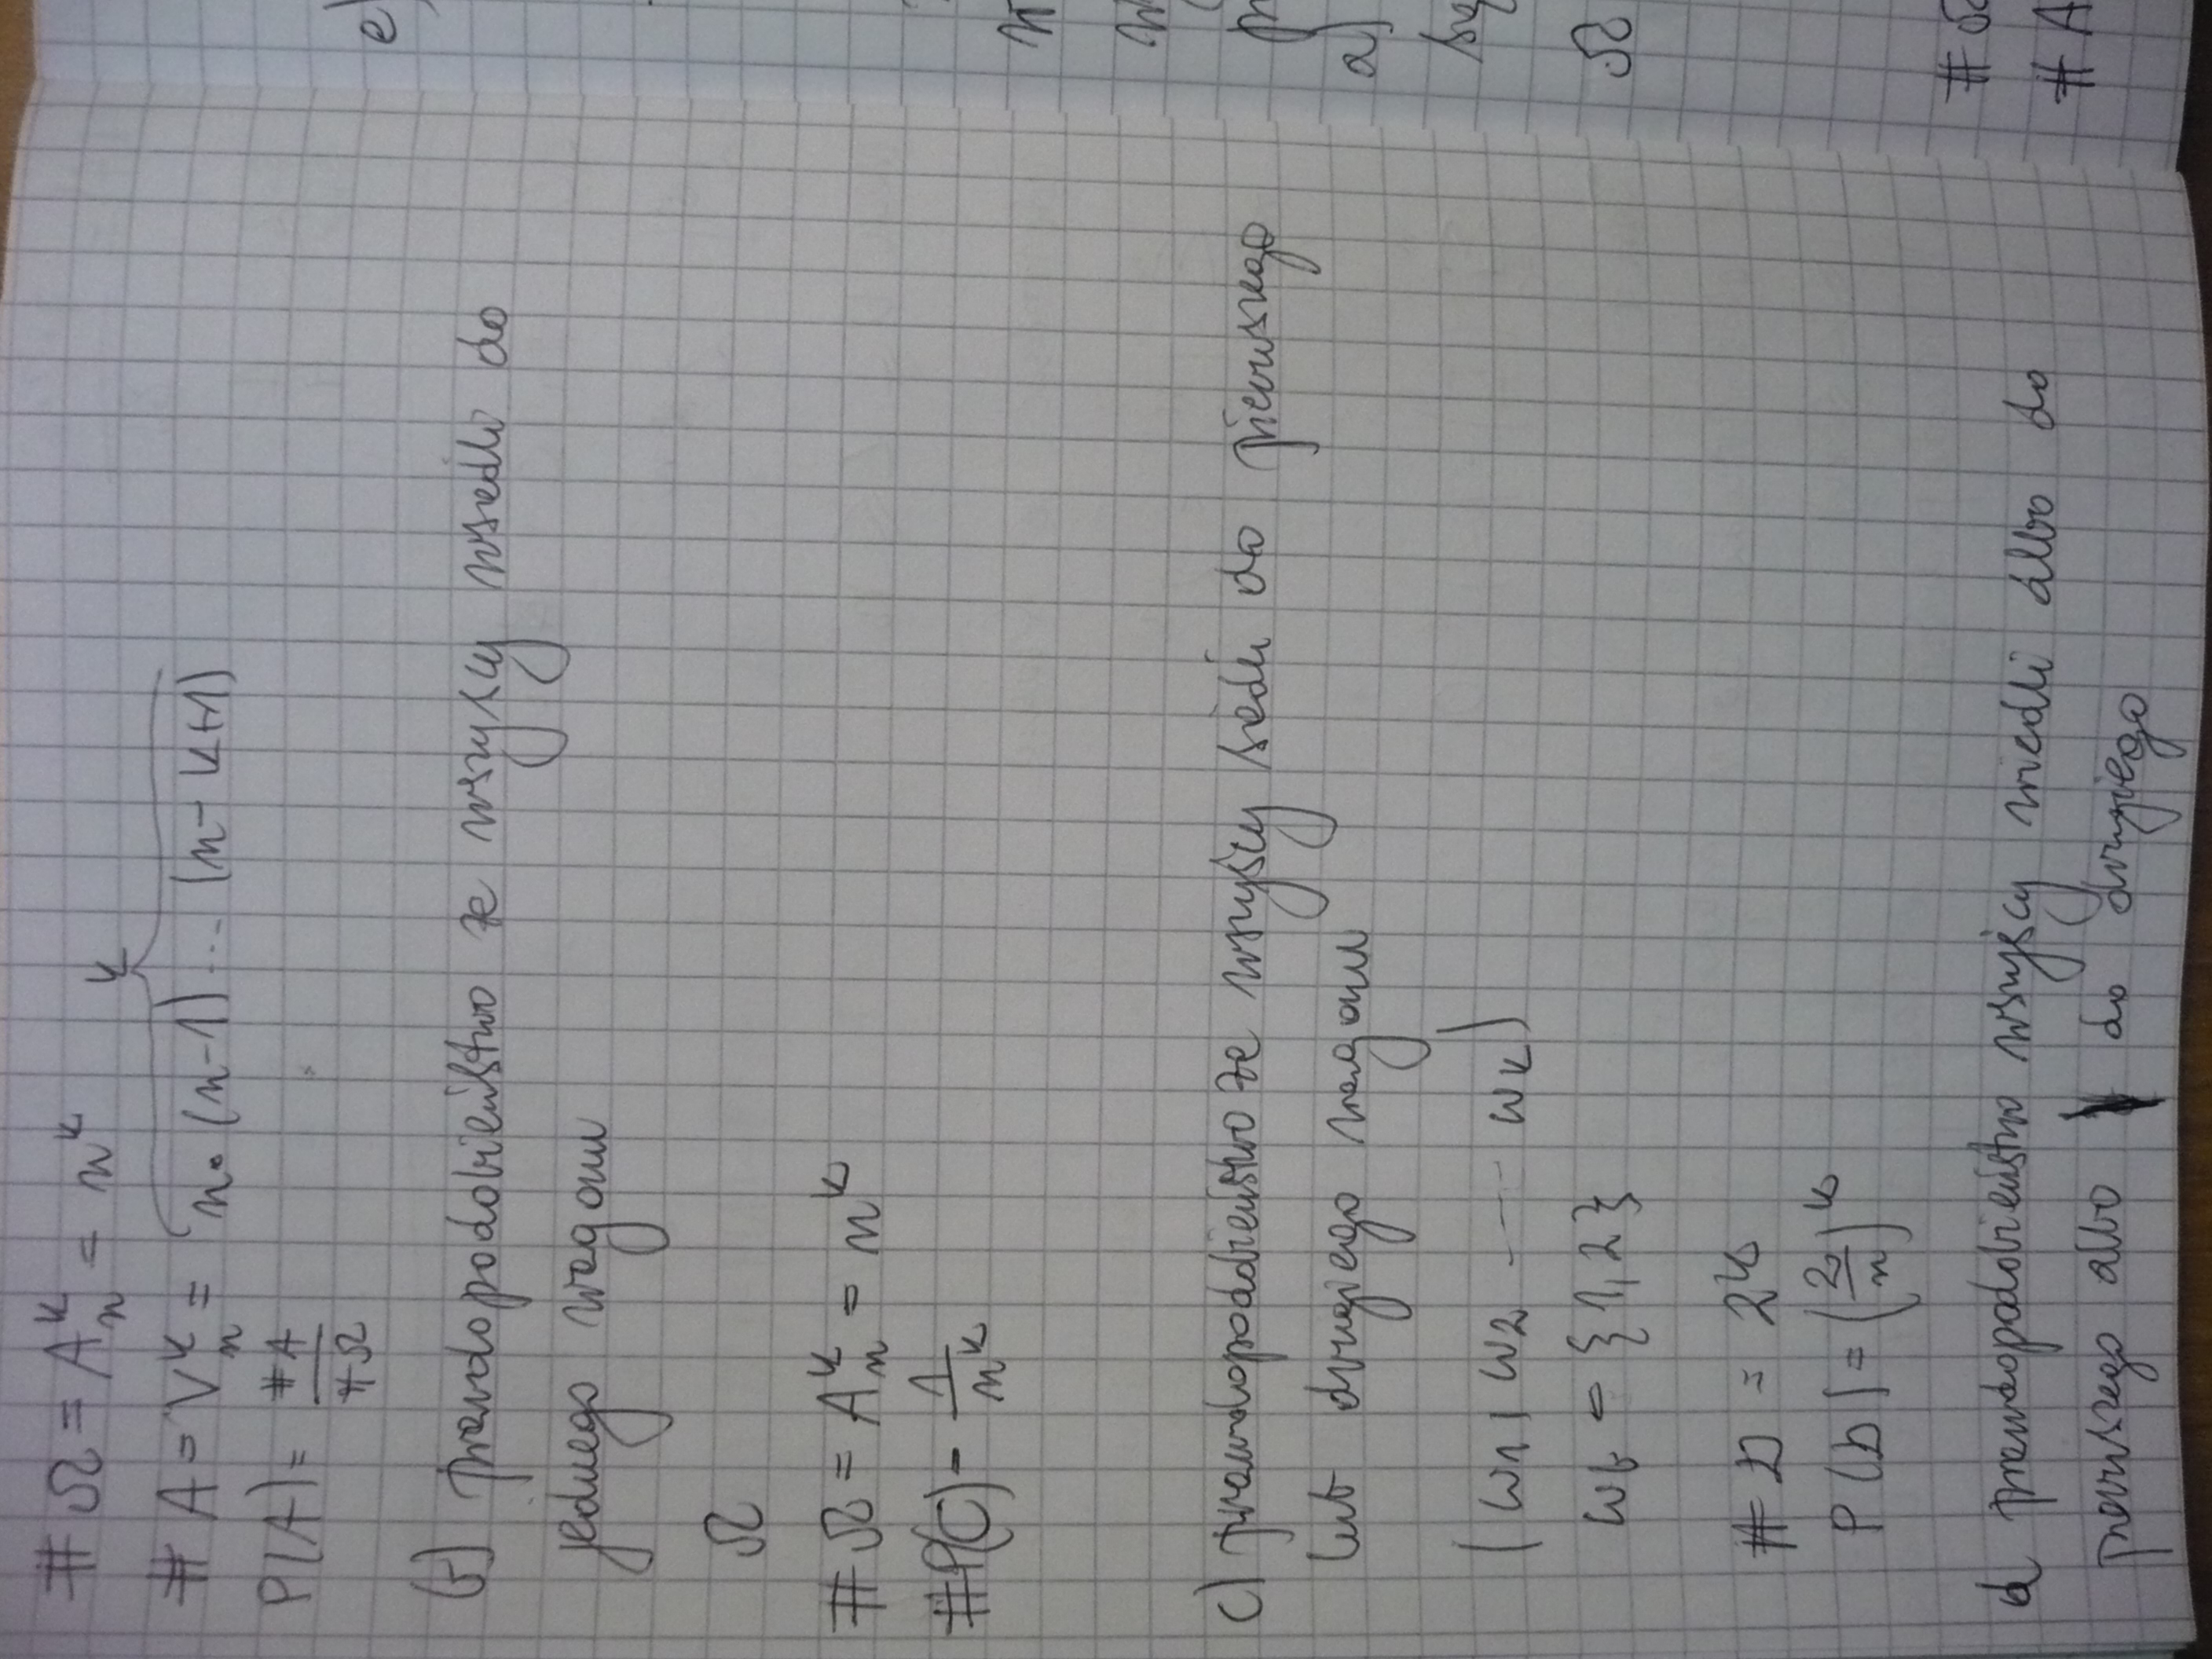 # Ω = A_n^k = n^k
k
# A = V_n^k = n·(n-1)...(n-k+1)
P(A) = #A/#Ω
b) prawdopodobieństwo że wszyscy wsiedli do
jednego wagonu
Ω
# Ω = A_n^k = n^k
#P(C) = 1/n^k
c) prawdopodobieństwo że wszyscy siedli do pierwszego
lub drugiego wagonu
(w1 w2 ... wk)
= {1,2}
# D = 2k
P(D) = (2/n)^k
d prawdopodobieństwo wszyscy wsiedli albo do
pierwszego albo do drugiego
e)
a)
Ω
#
# A